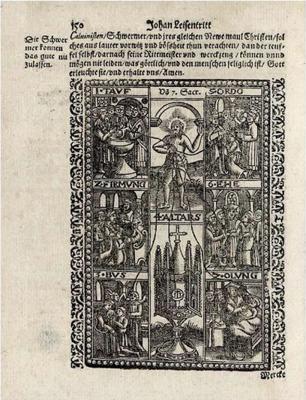 150
Johan Leisentritt
Die Schwer
mer können
das gute nit
zulassen.
Caluinisten/Schwermer/vnd jres gleichen Newe maul Christen/sol
ches aus lauter vorwitz vnd bößheit thun verachten/dan der teuf
fel selbst/darnach seine Rittmeister vnd werckzeug/können vnnd
mögen nit leiden/was götlich/vnd den menschen seliglich ist/Gott
erleuchte sie/vnd erhalte vns/Amen.
1·TAVF
Dʒ 7. Sacr.
5ORDO
2·FIRMVNG
6·EHE
4·ALTARS
3·BVS
7·OLVNG
Mercke